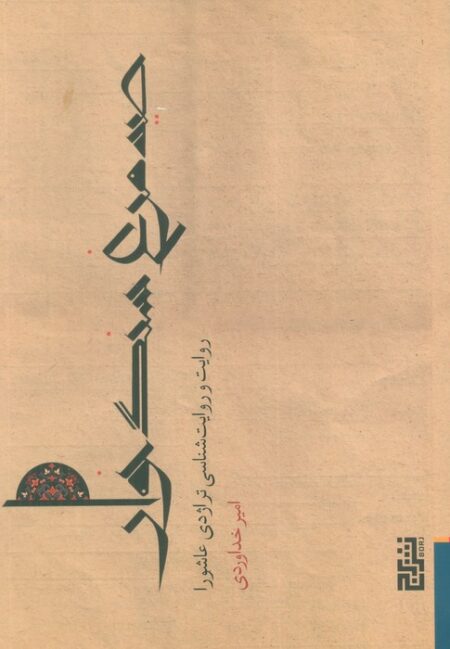 روایت و روایت‌شناسی تراژدی عاشورا
امیر خداوردی
نشر برج
BORJ